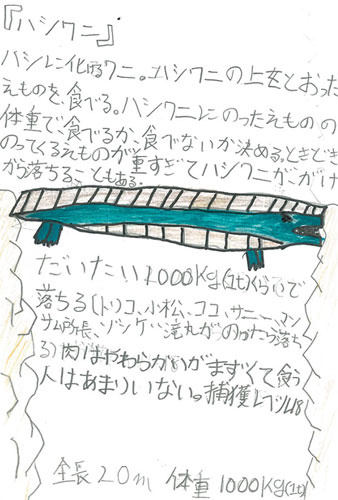 『ハシワニ』
ハシに化けるワニ。ハシワニの上をとおった
えものを、食べる。ハシワニにのったえものの
体重で、食べるか、食べないか決める。ときどき
のってくるえものが重すぎてハシワニががけ
から落ちることもある。
だいたい1000kg(1t)くらいで
落ちる(トリコ、小松、ココ、サニー、マン
サム所長、ゾンゲ、滝丸がのったら落ち
る)肉はやわらかいがまずくて食う
人はあまりいない。捕獲レベル18
全長20m 体重1000kg(1t)